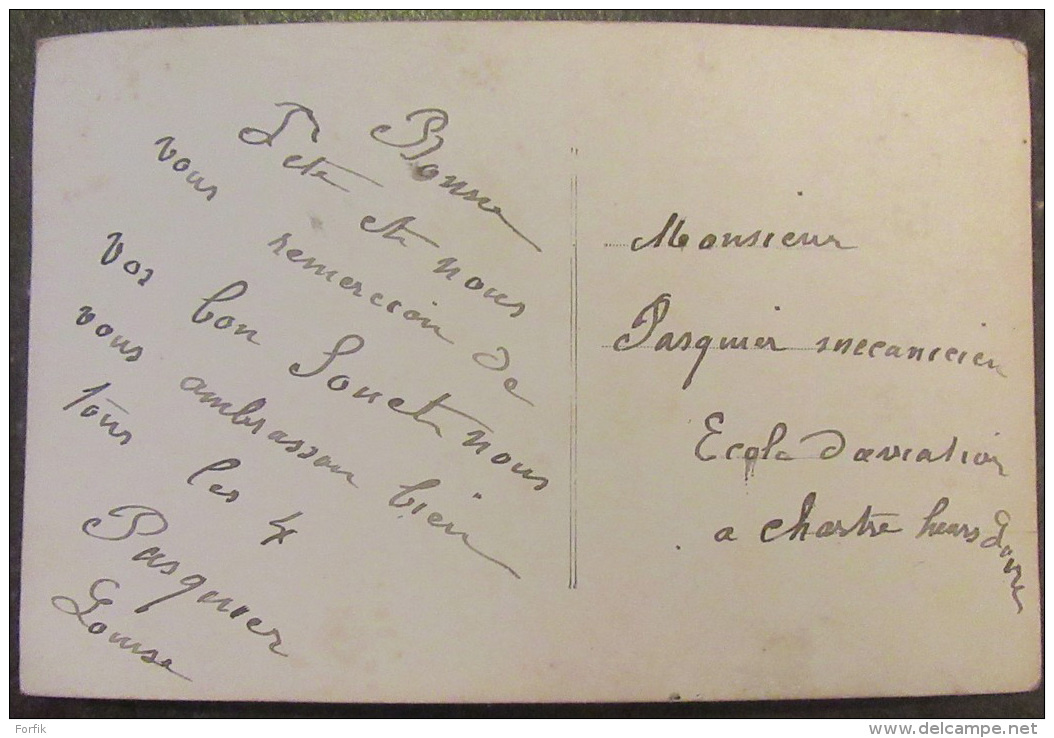 Bonne
Fete et nous
vous remercion de
vos bon Souet nous
vous ambrasson bien
tous les 4
Pasquier
Louise
Monsieur
Pasquier mecanicien
Ecole daviation
a chartre heurs Loire
Forfik
www.delcampe.net